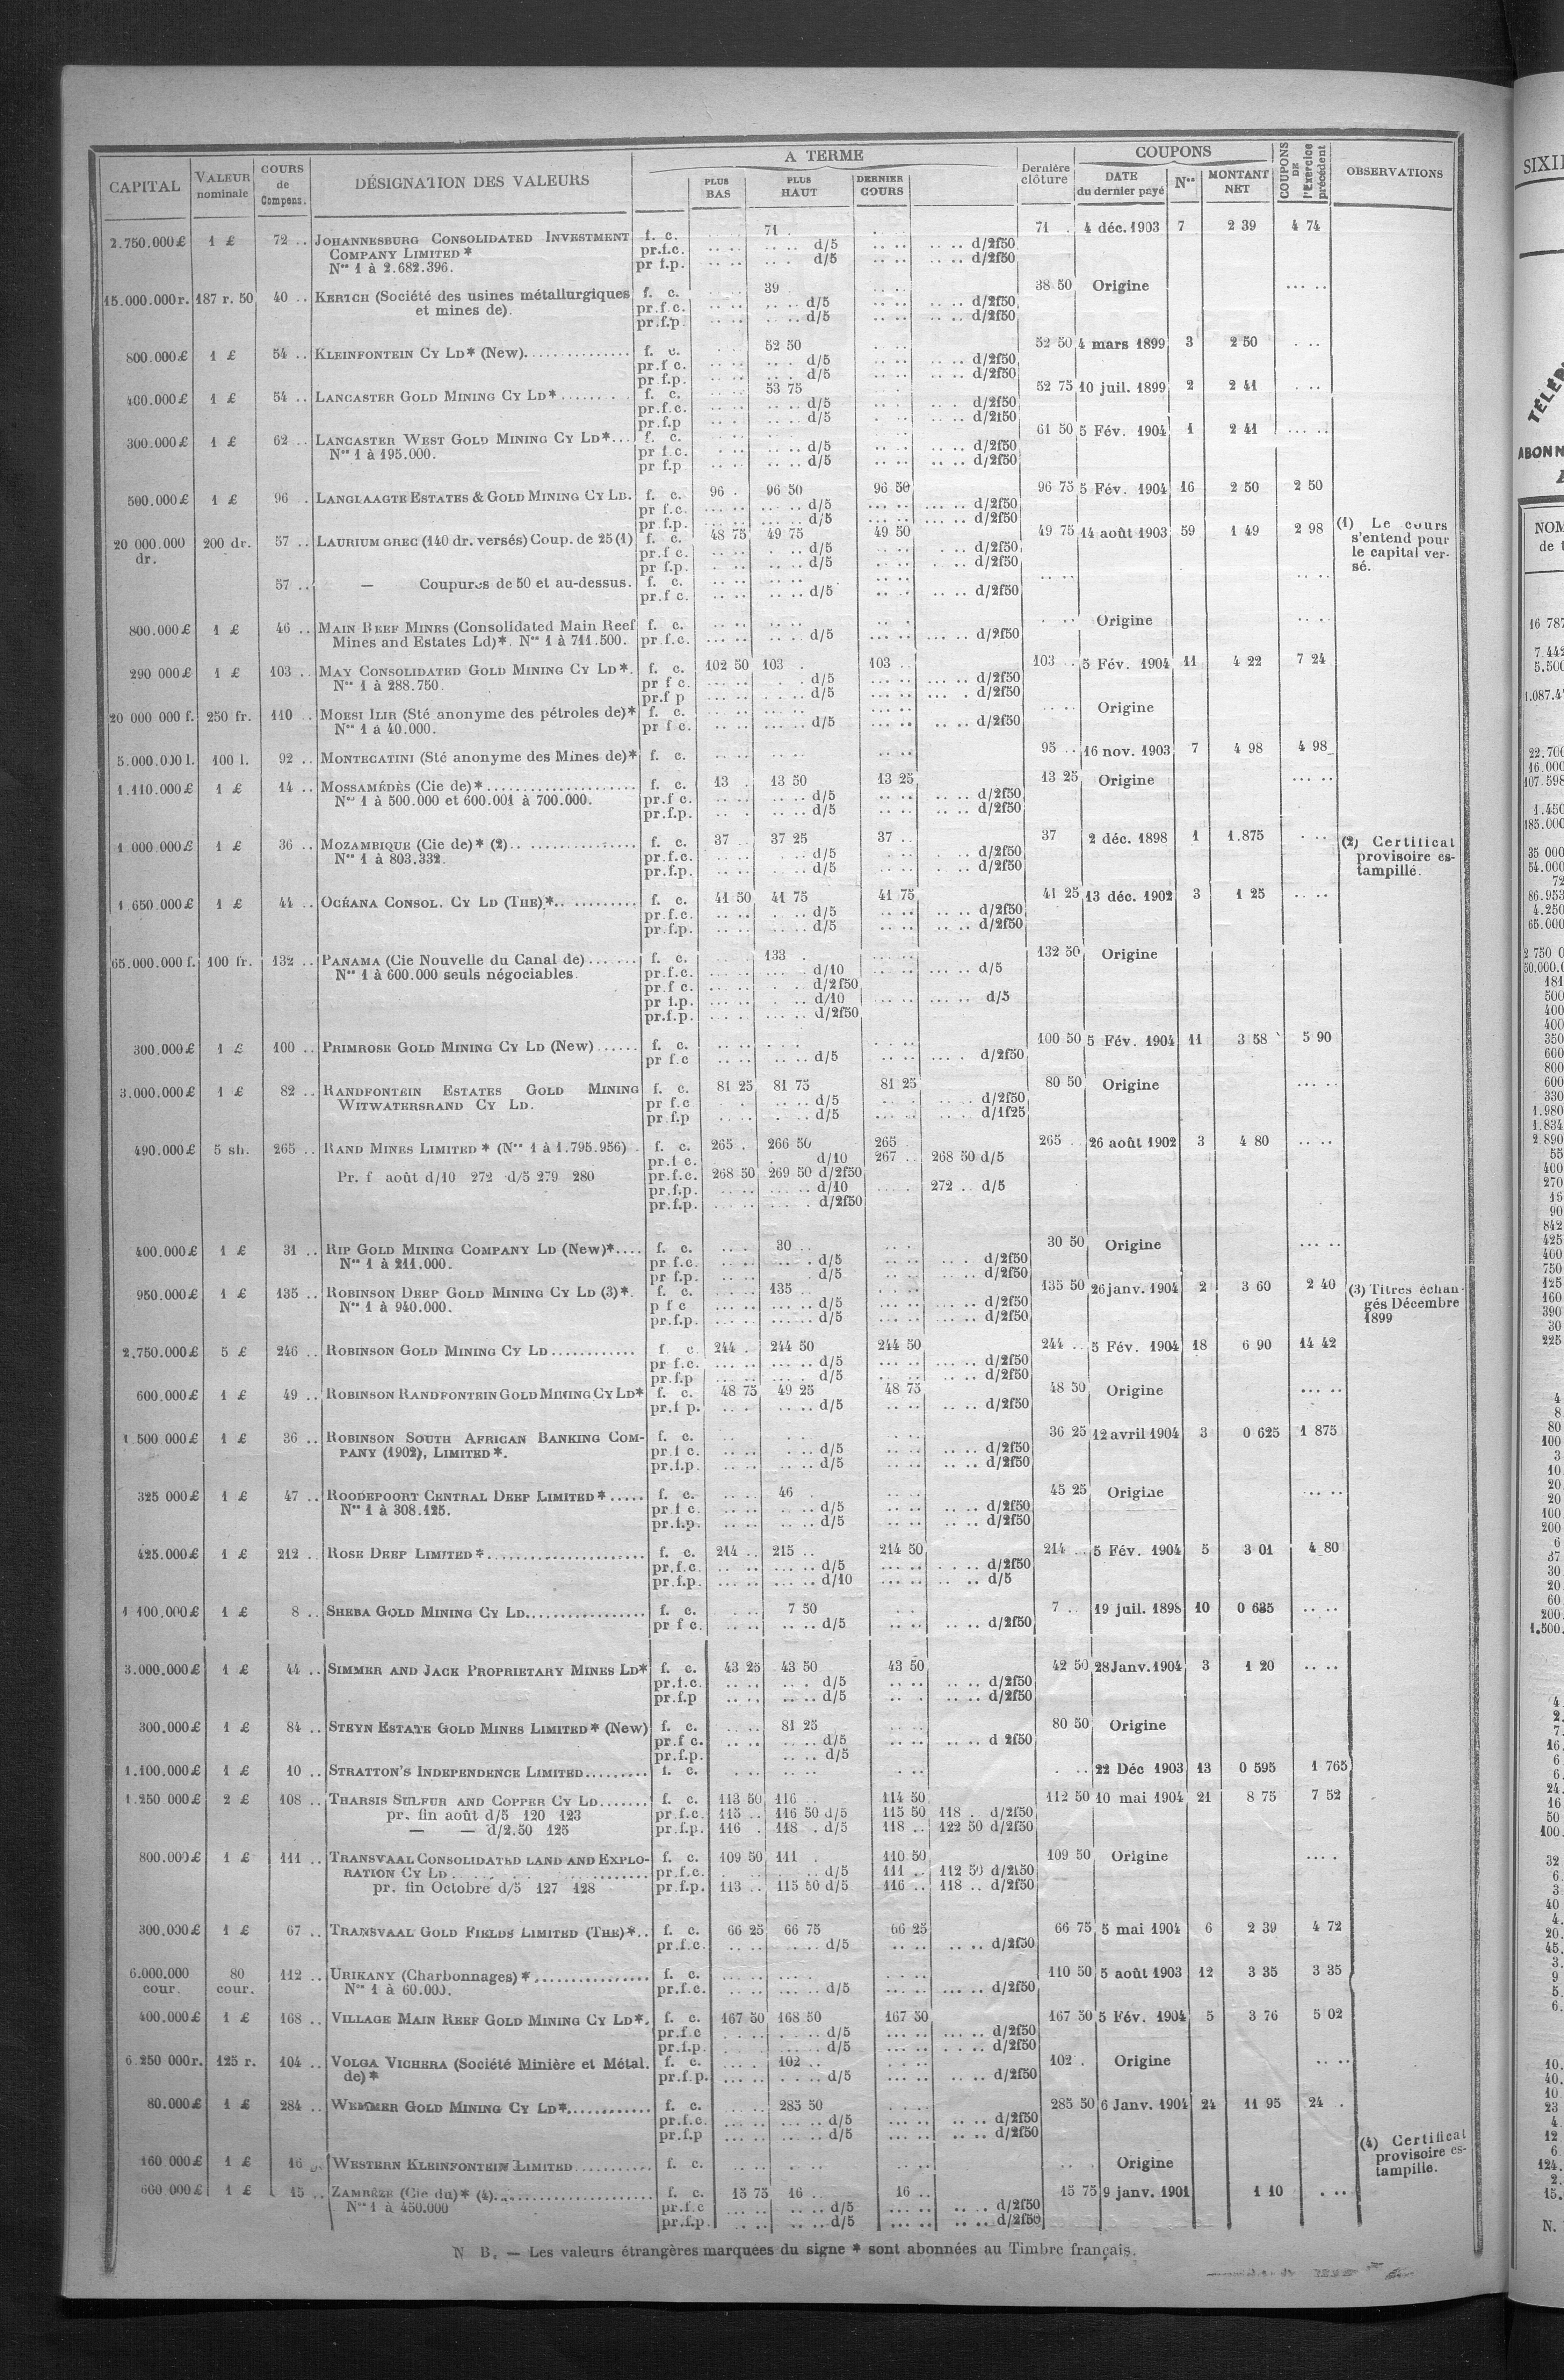 A TERME
COUPONS
CAPITAL | VALEUR nominale | COURS de Compens. | DÉSIGNATION DES VALEURS | PLUS BAS | PLUS HAUT | DERNIER COURS | Dernière clôture | DATE du dernier payé | Nos | MONTANT NET | COUPONS DE l'Exercice précédent | OBSERVATIONS
2.750.000£ 1 £ 72 .. JOHANNESBURG CONSOLIDATED INVESTMENT f. c. 71 . 71 . 4 déc. 1903 7 2 39 4 74
COMPANY LIMITED * pr.f.c. d/5 d/2f50
Nos 1 à 2.682.396. pr f.p. d/5 d/2f50
15.000.000r. 187 r. 50 40 .. KERTCH (Société des usines métallurgiques f. c. 39 38 50 Origine
et mines de). pr.f.c. d/5 d/2f50
pr.f.p. d/5 d/2f50
800.000£ 1 £ 54 .. KLEINFONTEIN CY LD* (New) f. c. 52 50 52 50 4 mars 1899 3 2 50
pr.f c. d/5 d/2f50
pr f.p. d/5 d/2f50
400.000£ 1 £ 54 .. LANCASTER GOLD MINING CY LD* f. c. 53 75 52 75 10 juil. 1899 2 2 41
pr.f.c. d/5 d/2f50
pr.f.p d/5 d/2f50
300.000£ 1 £ 62 .. LANCASTER WEST GOLD MINING CY LD*... f. c. 61 50 5 Fév. 1904 1 2 41
Nos 1 à 195.000. pr f.c. d/5 d/2f50
pr f.p d/5 d/2f50
500.000£ 1 £ 96 . LANGLAAGTE ESTATES & GOLD MINING CY LD. f. c. 96 . 96 50 96 50 96 75 5 Fév. 1904 16 2 50 2 50
pr f.c. d/5 d/2f50
pr f.p. d/5 d/2f50
20 000.000 dr. 200 dr. 57 .. LAURIUM GREC (140 dr. versés) Coup. de 25 (1) f. c. 48 75 49 75 49 50 49 75 14 août 1903 59 1 49 2 98 (1) Le cours s'entend pour le capital versé.
pr.f c. d/5 d/2f50
pr f.p. d/5 d/2f50
57 .. — Coupures de 50 et au-dessus. f. c.
pr.f c. d/5 d/2f50
800.000£ 1 £ 46 .. MAIN REEF MINES (Consolidated Main Reef f. c. Origine
Mines and Estates Ld)*. Nos 1 à 711.500. pr f.c. d/5 d/2f50
290 000£ 1 £ 103 .. MAY CONSOLIDATED GOLD MINING CY LD*. f. c. 102 50 103 . 103 .. 103 .. 5 Fév. 1904 11 4 22 7 24
Nos 1 à 288.750. pr f c. d/5 d/2f50
pr.f p d/5 d/2f50
20 000 000 f. 250 fr. 110 .. MORSI ILIR (Sté anonyme des pétroles de)* f. c. Origine
Nos 1 à 40.000. pr f c. d/5 d/2f50
5.000.000 l. 100 l. 92 .. MONTECATINI (Sté anonyme des Mines de)* f. c. 95 .. 16 nov. 1903 7 4 98 4 98
1.110.000£ 1 £ 14 .. MOSSAMÉDÈS (Cie de)* f. c. 13 . 13 50 13 25 13 25 Origine
Nos 1 à 500.000 et 600.001 à 700.000. pr.f c. d/5 d/2f50
pr.f.p. d/5 d/2f50
1 000.000£ 1 £ 36 .. MOZAMBIQUE (Cie de)* (2) f. c. 37 . 37 25 37 .. 37 2 déc. 1898 1 1.875 (2) Certificat provisoire estampillé.
Nos 1 à 803.332. pr f.c. d/5 d/2f50
pr.f.p. d/5 d/2f50
1 650.000£ 1 £ 44 .. OCÉANA CONSOL. CY LD (THE)* f. c. 41 50 41 75 41 75 41 25 13 déc. 1902 3 1 25
pr f.c. d/5 d/2f50
pr.f.p. d/5 d/2f50
65.000.000 f. 100 fr. 132 .. PANAMA (Cie Nouvelle du Canal de) f. c. 133 . 132 50 Origine
Nos 1 à 600.000 seuls négociables. pr.f.c. d/10 d/5
pr.f c. d/2f50
pr f.p. d/10 d/5
pr.f.p. d/2f50
300.000£ 1 £ 100 .. PRIMROSE GOLD MINING CY LD (New) f. c. 100 50 5 Fév. 1904 11 3 58 5 90
pr f.c d/5 d/2f50
3.000.000£ 1 £ 82 .. RANDFONTEIN ESTATES GOLD MINING f. c. 81 25 81 75 81 25 80 50 Origine
WITWATERSRAND CY LD. pr f.c d/5 d/2f50
pr f.p d/5 d/1f25
490.000£ 5 sh. 265 .. RAND MINES LIMITED * (Nos 1 à 1.795.956) . f. c. 265 . 266 50 265 . 265 .. 26 août 1902 3 4 80
pr.f c. d/10 267 .. 268 50 d/5
Pr. f août d/10 272 d/5 279 280 pr.f.c. 268 50 269 50 d/2f50
pr.f.p. d/10 272 .. d/5
pr.f.p. d/2f50
400.000£ 1 £ 31 .. RIP GOLD MINING COMPANY LD (New)*.... f. c. 30 .. 30 50 Origine
Nos 1 à 211.000. pr f.c. d/5 d/2f50
pr f.p. d/5 d/2f50
950.000£ 1 £ 135 .. ROBINSON DEEP GOLD MINING CY LD (3)*. f. c. 135 .. 135 50 26 janv. 1904 2 3 60 2 40 (3) Titres échangés Décembre 1899
Nos 1 à 940.000. p f c d/5 d/2f50
pr.f.p. d/5 d/2f50
2.750.000£ 5 £ 246 .. ROBINSON GOLD MINING CY LD f c. 244 . 244 50 244 50 244 .. 5 Fév. 1904 18 6 90 14 42
pr f.c. d/5 d/2f50
pr.f.p d/5 d/2f50
600.000£ 1 £ 49 .. ROBINSON RANDFONTEIN GOLD MINING CY LD* f. c. 48 75 49 25 48 75 48 50 Origine
pr.f p. d/5 d/2f50
1 500 000£ 1 £ 36 .. ROBINSON SOUTH AFRICAN BANKING COM- f. c. 36 25 12 avril 1904 3 0 625 1 875
PANY (1902), LIMITED*. pr.f c. d/5 d/2f50
pr.f.p. d/5 d/2f50
325 000£ 1 £ 47 .. ROODEPOORT CENTRAL DEEP LIMITED *..... f. c. 46 . 45 25 Origine
Nos 1 à 308.125. pr.f c. d/5 d/2f50
pr.f.p. d/5 d/2f50
425.000£ 1 £ 212 .. ROSE DEEP LIMITED * f. c. 214 .. 215 .. 214 50 214 .. 5 Fév. 1904 5 3 01 4 80
pr.f.c. d/5 d/2f50
pr.f.p. d/10 d/5
1 100.000£ 1 £ 8 .. SHEBA GOLD MINING CY LD f. c. 7 50 7 .. 19 juil. 1898 10 0 635
pr f c. d/5 d/2f50
3.000.000£ 1 £ 44 .. SIMMER AND JACK PROPRIETARY MINES LD* f. c. 43 25 43 50 43 50 42 50 28 Janv. 1904 3 1 20
pr.f.c. d/5 d/2f50
pr.f.p d/5 d/2f50
300.000£ 1 £ 84 .. STEYN ESTATE GOLD MINES LIMITED* (New) f. c. 81 25 80 50 Origine
pr.f c. d/5 d 2f50
pr.f.p. d/5
1.100.000£ 1 £ 10 .. STRATTON'S INDEPENDENCE LIMITED f. c. 22 Déc 1903 13 0 595 1 765
1.250 000£ 2 £ 108 .. THARSIS SULFUR AND COPPER CY LD f. c. 113 50 116 .. 114 50 112 50 10 mai 1904 21 8 75 7 52
pr. fin août d/5 120 123 pr f.c. 115 .. 116 50 d/5 115 50 118 .. d/2f50
— — d/2.50 125 pr f.p. 116 . 118 . d/5 118 .. 122 50 d/2f50
800.000£ 1 £ 111 .. TRANSVAAL CONSOLIDATED LAND AND EXPLO- f. c. 109 50 111 . 110 50 109 50 Origine
RATION CY LD pr.f.c. d/5 111 .. 112 50 d/2f50
pr. fin Octobre d/5 127 128 pr f.p. 113 .. 115 50 d/5 116 .. 118 .. d/2f50
300.000£ 1 £ 67 .. TRANSVAAL GOLD FIELDS LIMITED (THE)*.. f. c. 66 25 66 75 66 25 66 75 5 mai 1904 6 2 39 4 72
pr.f.c. d/5 d/2f50
6.000.000 cour. 80 cour. 112 .. URIKANY (Charbonnages) * f. c. 110 50 5 août 1903 12 3 35 3 35
Nos 1 à 60.000. pr.f.c. d/5 d/2f50
400.000£ 1 £ 168 .. VILLAGE MAIN REEF GOLD MINING CY LD*. f. c. 167 50 168 50 167 50 167 50 5 Fév. 1904 5 3 76 5 02
pr.f.c d/5 d/2f50
pr.f.p. d/5 d/2f50
6.250 000r. 125 r. 104 .. VOLGA VICHERA (Société Minière et Métal. f. c. 102 .. 102 . Origine
de)* pr.f.p. d/5 d/2f50
80.000£ 1 £ 284 .. WEMMER GOLD MINING CY LD* f. c. 285 50 285 50 6 Janv. 1904 24 11 95 24 .
pr.f.c. d/5 d/2f50
pr.f.p d/5 d/2f50
160 000£ 1 £ 16 .. WESTERN KLEINFONTEIN LIMITED f. c. Origine (4) Certificat provisoire estampille.
600 000£ 1 £ 15 .. ZAMBÈZE (Cie du)* (4) f. c. 15 75 16 .. 16 .. 15 75 9 janv. 1901 1 10
Nos 1 à 450.000 pr.f.c d/5 d/2f50
pr.f.p. d/5 d/2f50
N B. — Les valeurs étrangères marquées du signe * sont abonnées au Timbre français.